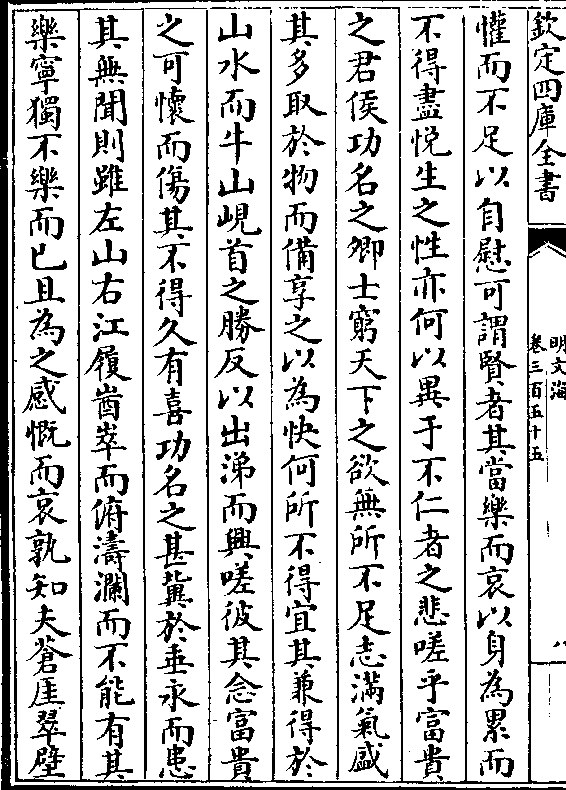 欽定四庫全書
明文海
卷三百五十五
八
懽而不足以自慰可謂賢者其當樂而哀以身為累而
不得盡悦生之性亦何以異于不仁者之悲嗟乎富貴
之君侯功名之卿士窮天下之欲無所不足志滿氣盛
其多取於物而備享之以為快何所不得宜其兼得於
山水而牛山峴首之勝反以出涕而興嗟彼其念富貴
之可懷而傷其不得久有喜功名之甚冀於垂永而患
其無聞則雖左山右江履崷崒而俯濤瀾而不能有其
樂寧獨不樂而已且為之感慨而哀孰知夫蒼厓翠壁